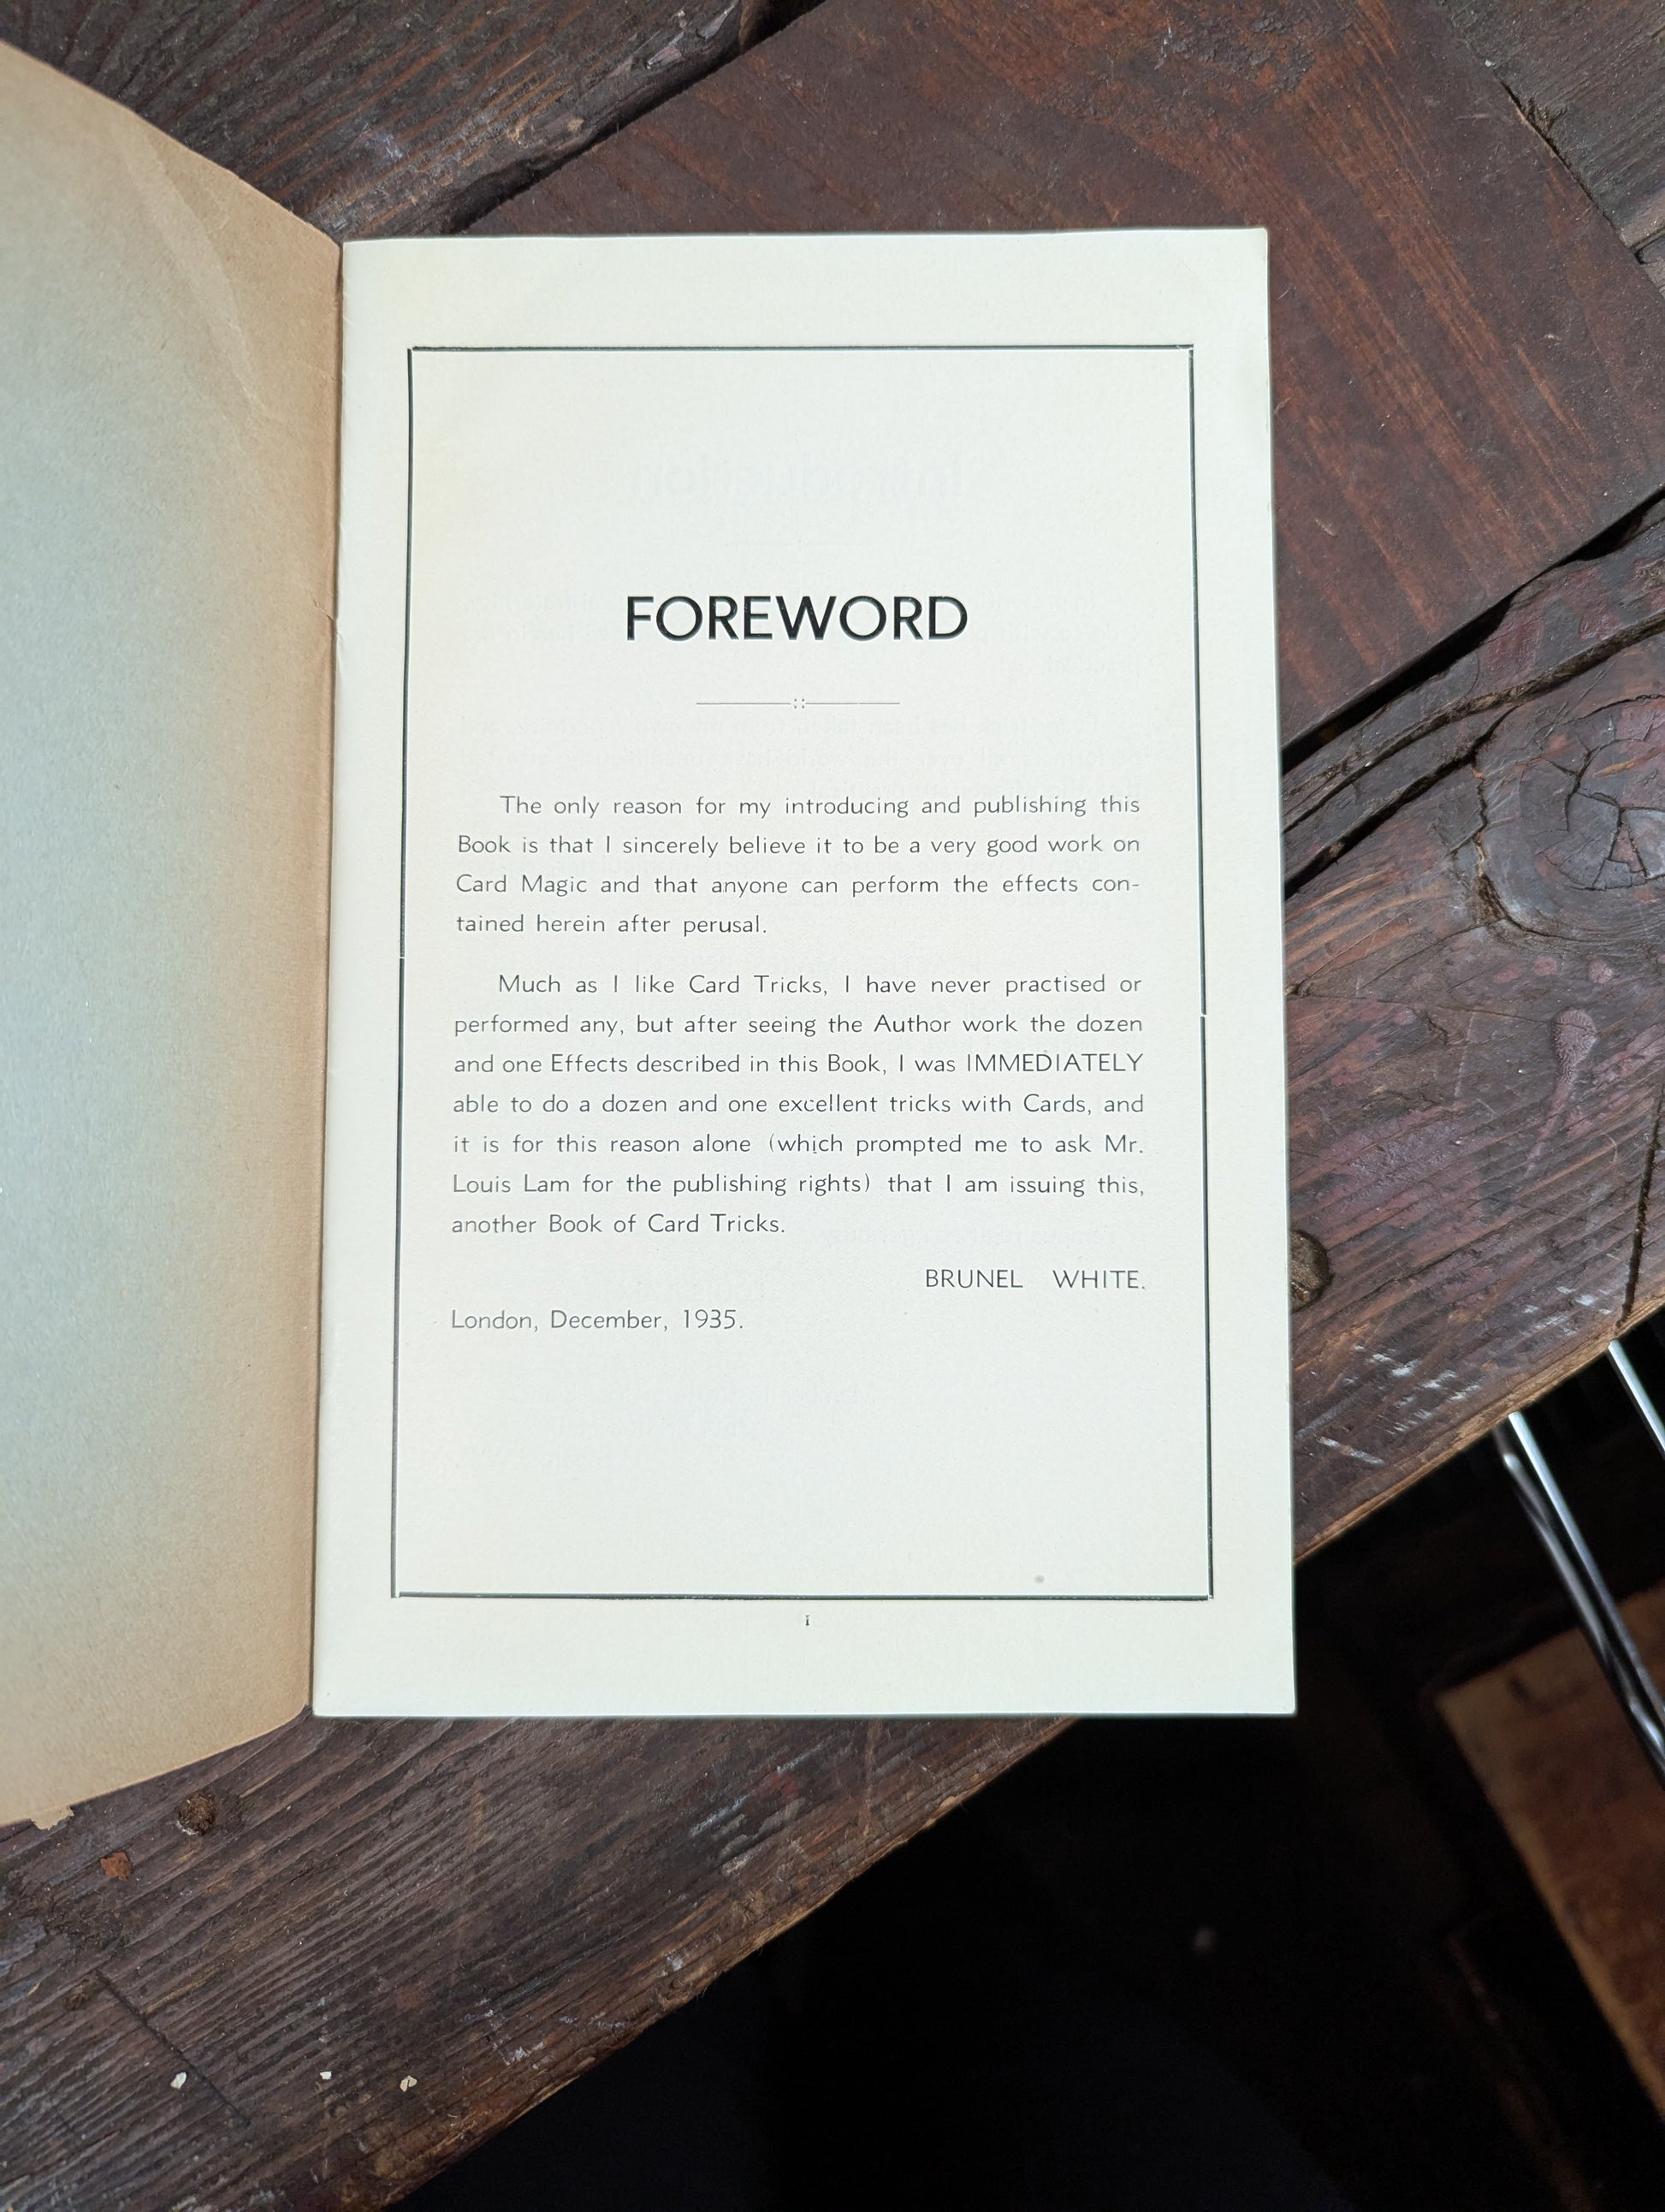 FOREWORD
The only reason for my introducing and publishing this
Book is that I sincerely believe it to be a very good work on
Card Magic and that anyone can perform the effects con-
tained herein after perusal.
Much as I like Card Tricks, I have never practised or
performed any, but after seeing the Author work the dozen
and one Effects described in this Book, I was IMMEDIATELY
able to do a dozen and one excellent tricks with Cards, and
it is for this reason alone (which prompted me to ask Mr.
Louis Lam for the publishing rights) that I am issuing this,
another Book of Card Tricks.
BRUNEL WHITE.
London, December, 1935.
i